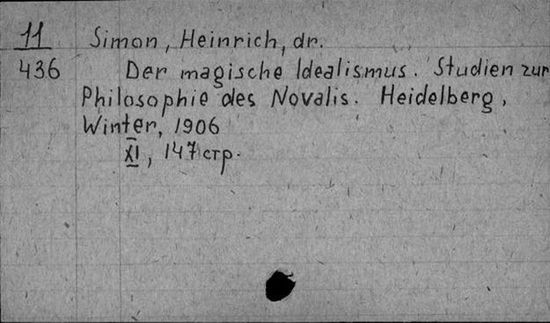 11 Simon, Heinrich, dr.
436 Der magische Idealismus. Studien zur
Philosophie des Novalis. Heidelberg,
Winter, 1906
XI, 147 стр.